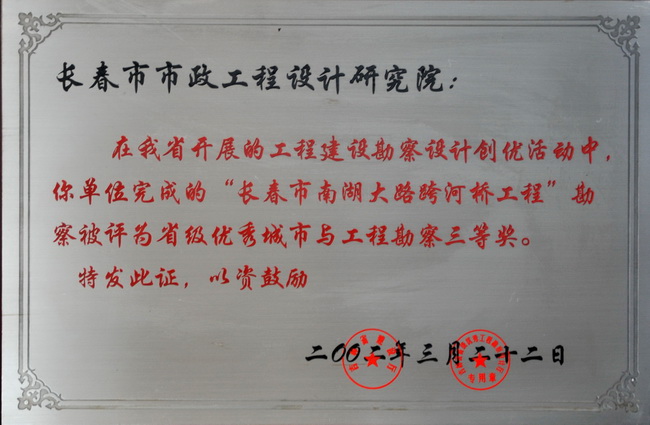 长春市市政工程设计研究院：
在我省开展的工程建设勘察设计创优活动中，
你单位完成的“长春市南湖大路跨河桥工程”勘
察被评为省级优秀城市与工程勘察三等奖。
特发此证，以资鼓励
二00二年三月二十二日
专用章